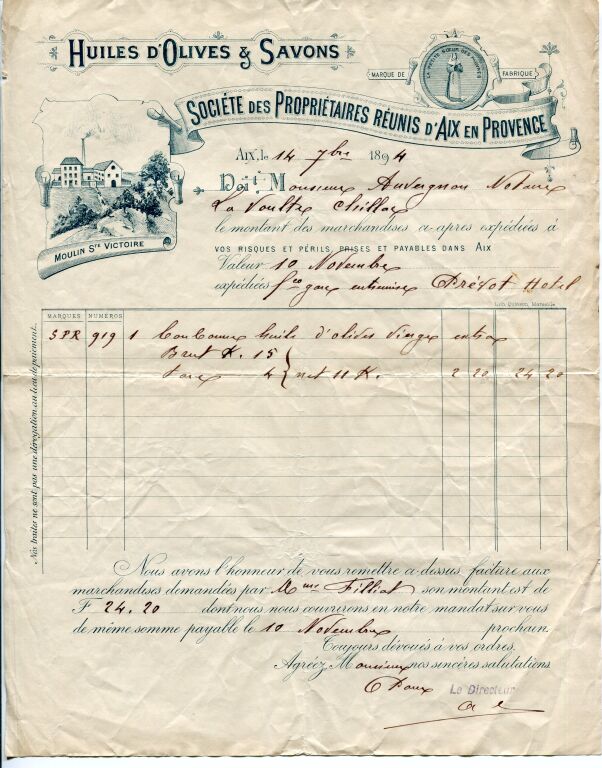 HUILES D'OLIVES & SAVONS
LA PETITE SŒUR DES PAUVRES
MARQUE DE FABRIQUE
SOCIÉTÉ DES PROPRIÉTAIRES RÉUNIS D'AIX EN PROVENCE
MOULIN STE VICTOIRE
Aix, le 14 7bre 1894
Doit M Monsieur Auvergnon Notaire
La Voulte
le montant des marchandises ci-après expédiées à
VOS RISQUES ET PÉRILS, PRISES ET PAYABLES DANS AIX
Valeur 10 Novembre
expédiées fco gare Prévot Hotel
MARQUES NUMÉROS
SPR 919 1 Bonbonne huile d'olives vierge extra
Brut K. 15
Tare 4 net 11 K. 2 20 24 20
Nos traites ne sont pas une dérogation au lieu de paiement.
Nous avons l'honneur de vous remettre ci-dessus facture aux
marchandises demandées par Mme Filliat son montant est de
F 24.20 dont nous nous couvrirons en notre mandat sur vous
de même somme payable le 10 Novembre prochain.
Toujours dévoués à vos ordres.
Agréez Monsieur nos sincères salutations
Le Directeur